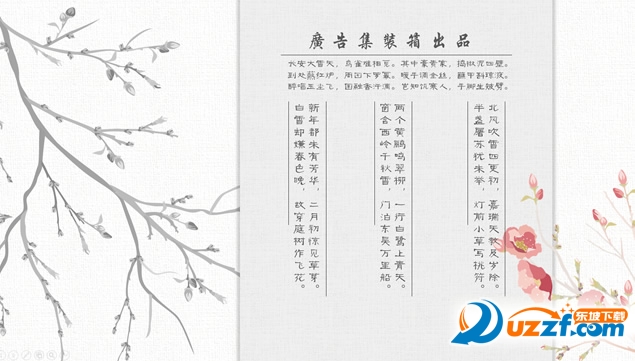 廣告集裝箱出品
长安大雪天，鸟雀难相觅。其中豪贵家，捣椒泥四壁。
到处爇红炉，周回下罗幂。暖手调金丝，蘸甲斟琼液。
醉唱玉尘飞，困融香汗滴。岂知饥寒人，手脚生皴劈。
北风吹雪四更初，嘉瑞天教及岁除。
半盏屠苏犹未举，灯前小草写桃符。
两个黄鹂鸣翠柳，一行白鹭上青天。
窗含西岭千秋雪，门泊东吴万里船。
新年都未有芳华，二月初惊见草芽。
白雪却嫌春色晚，故穿庭树作飞花。
东坡下载
uzzf.com